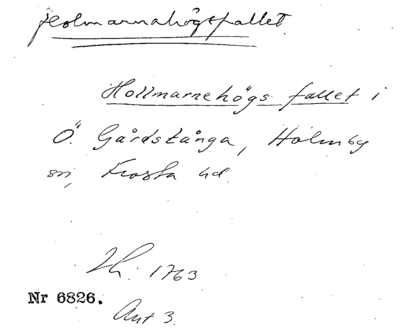 Holmarnahögsfallet
Hollmarnehögs fallet i
Ö. Gårdstånga, Holmby
sn, Frosta hd.
Lh. 1763
Nr 6826.
Akt 3.